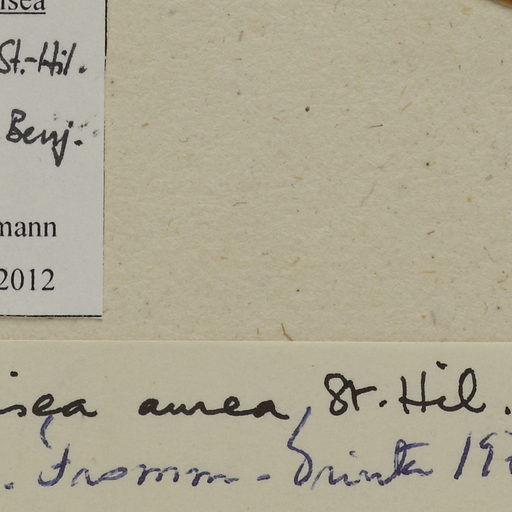 nsea
St.-Hil.
Benj.
mann
2012
isea aurea St. Hil.
. Fromm - Trinta 197